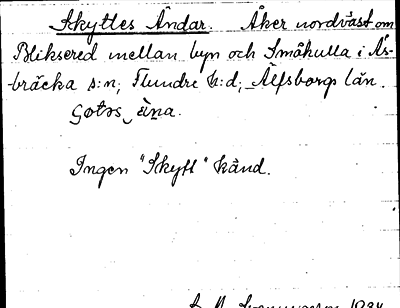 Skyttes Åndar. Åker nordväst om
Bliksered mellan byn och Småkulla i Ås-
bräcka s:n, Flundre h:d, Älfsborgs län.
Ingen "Skytt" känd.